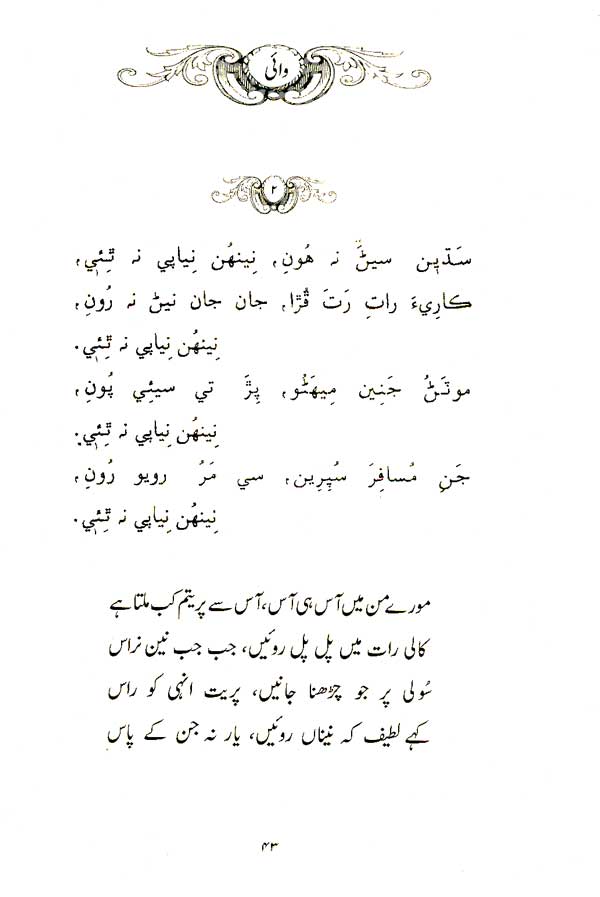 وائی
۲
سَڌڙين سيڻَ نہ هُونِ، نِينهُن نِياپي نہ ٿِئي،
ڪارِيءَ راتِ رَتَ ڦُڙا، جان جان نيڻ نہ رُونِ،
نِينهُن نِياپي نہ ٿِئي.
موٽَڻُ جَنِين مِيهَڻو، پِڙَ تي سيئِي پُونِ،
نِينهُن نِياپي نہ ٿِئي.
جَنِ مُسافِرَ سُپِرِين، سي مَرُ رويو رُونِ،
نِينهُن نِياپي نہ ٿِئي.
مورے من میں آس ہی آس، آس سے پریتم کب ملتا ہے
کالی رات میں پل پل روئیں، جب جب نین نراس
سُولی پر جو چڑھنا جانیں، پریت انہی کو راس
کہے لطیف کہ نیناں روئیں، یار نہ جن کے پاس
۴۳